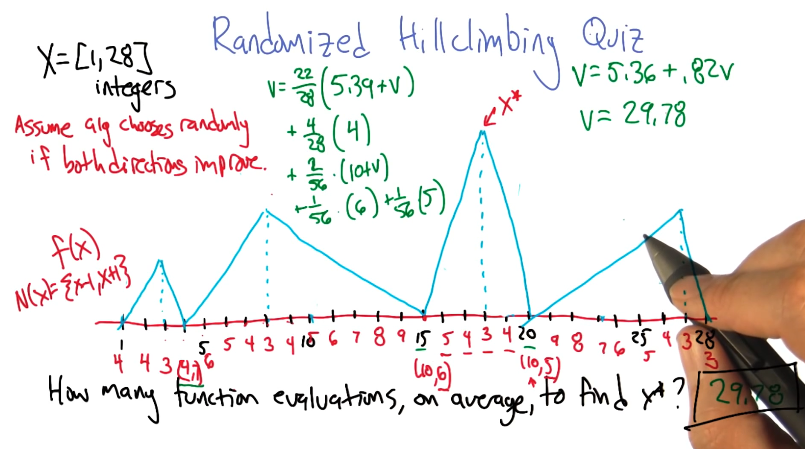 Randomized Hillclimbing Quiz
X = [1,28]
integers
Assume alg chooses randomly
if both directions improve.
v = 22/28 (5.39+v)
+ 4/28 (4)
+ 2/56 · (10+v)
+ 1/56 · (6) + 1/56 (5)
v = 5.36 + .82v
v = 29.78
x*
f(x)
N(x) = {x-1, x+1}
1 5 10 15 20 25 28
4 4 3 (4,1) 6 5 4 3 4 5 6 7 8 9 (10,6) 5 4 3 4 (10,5) 9 8 7 6 5 4 3 3
How many function evaluations, on average, to find x*? 29.78